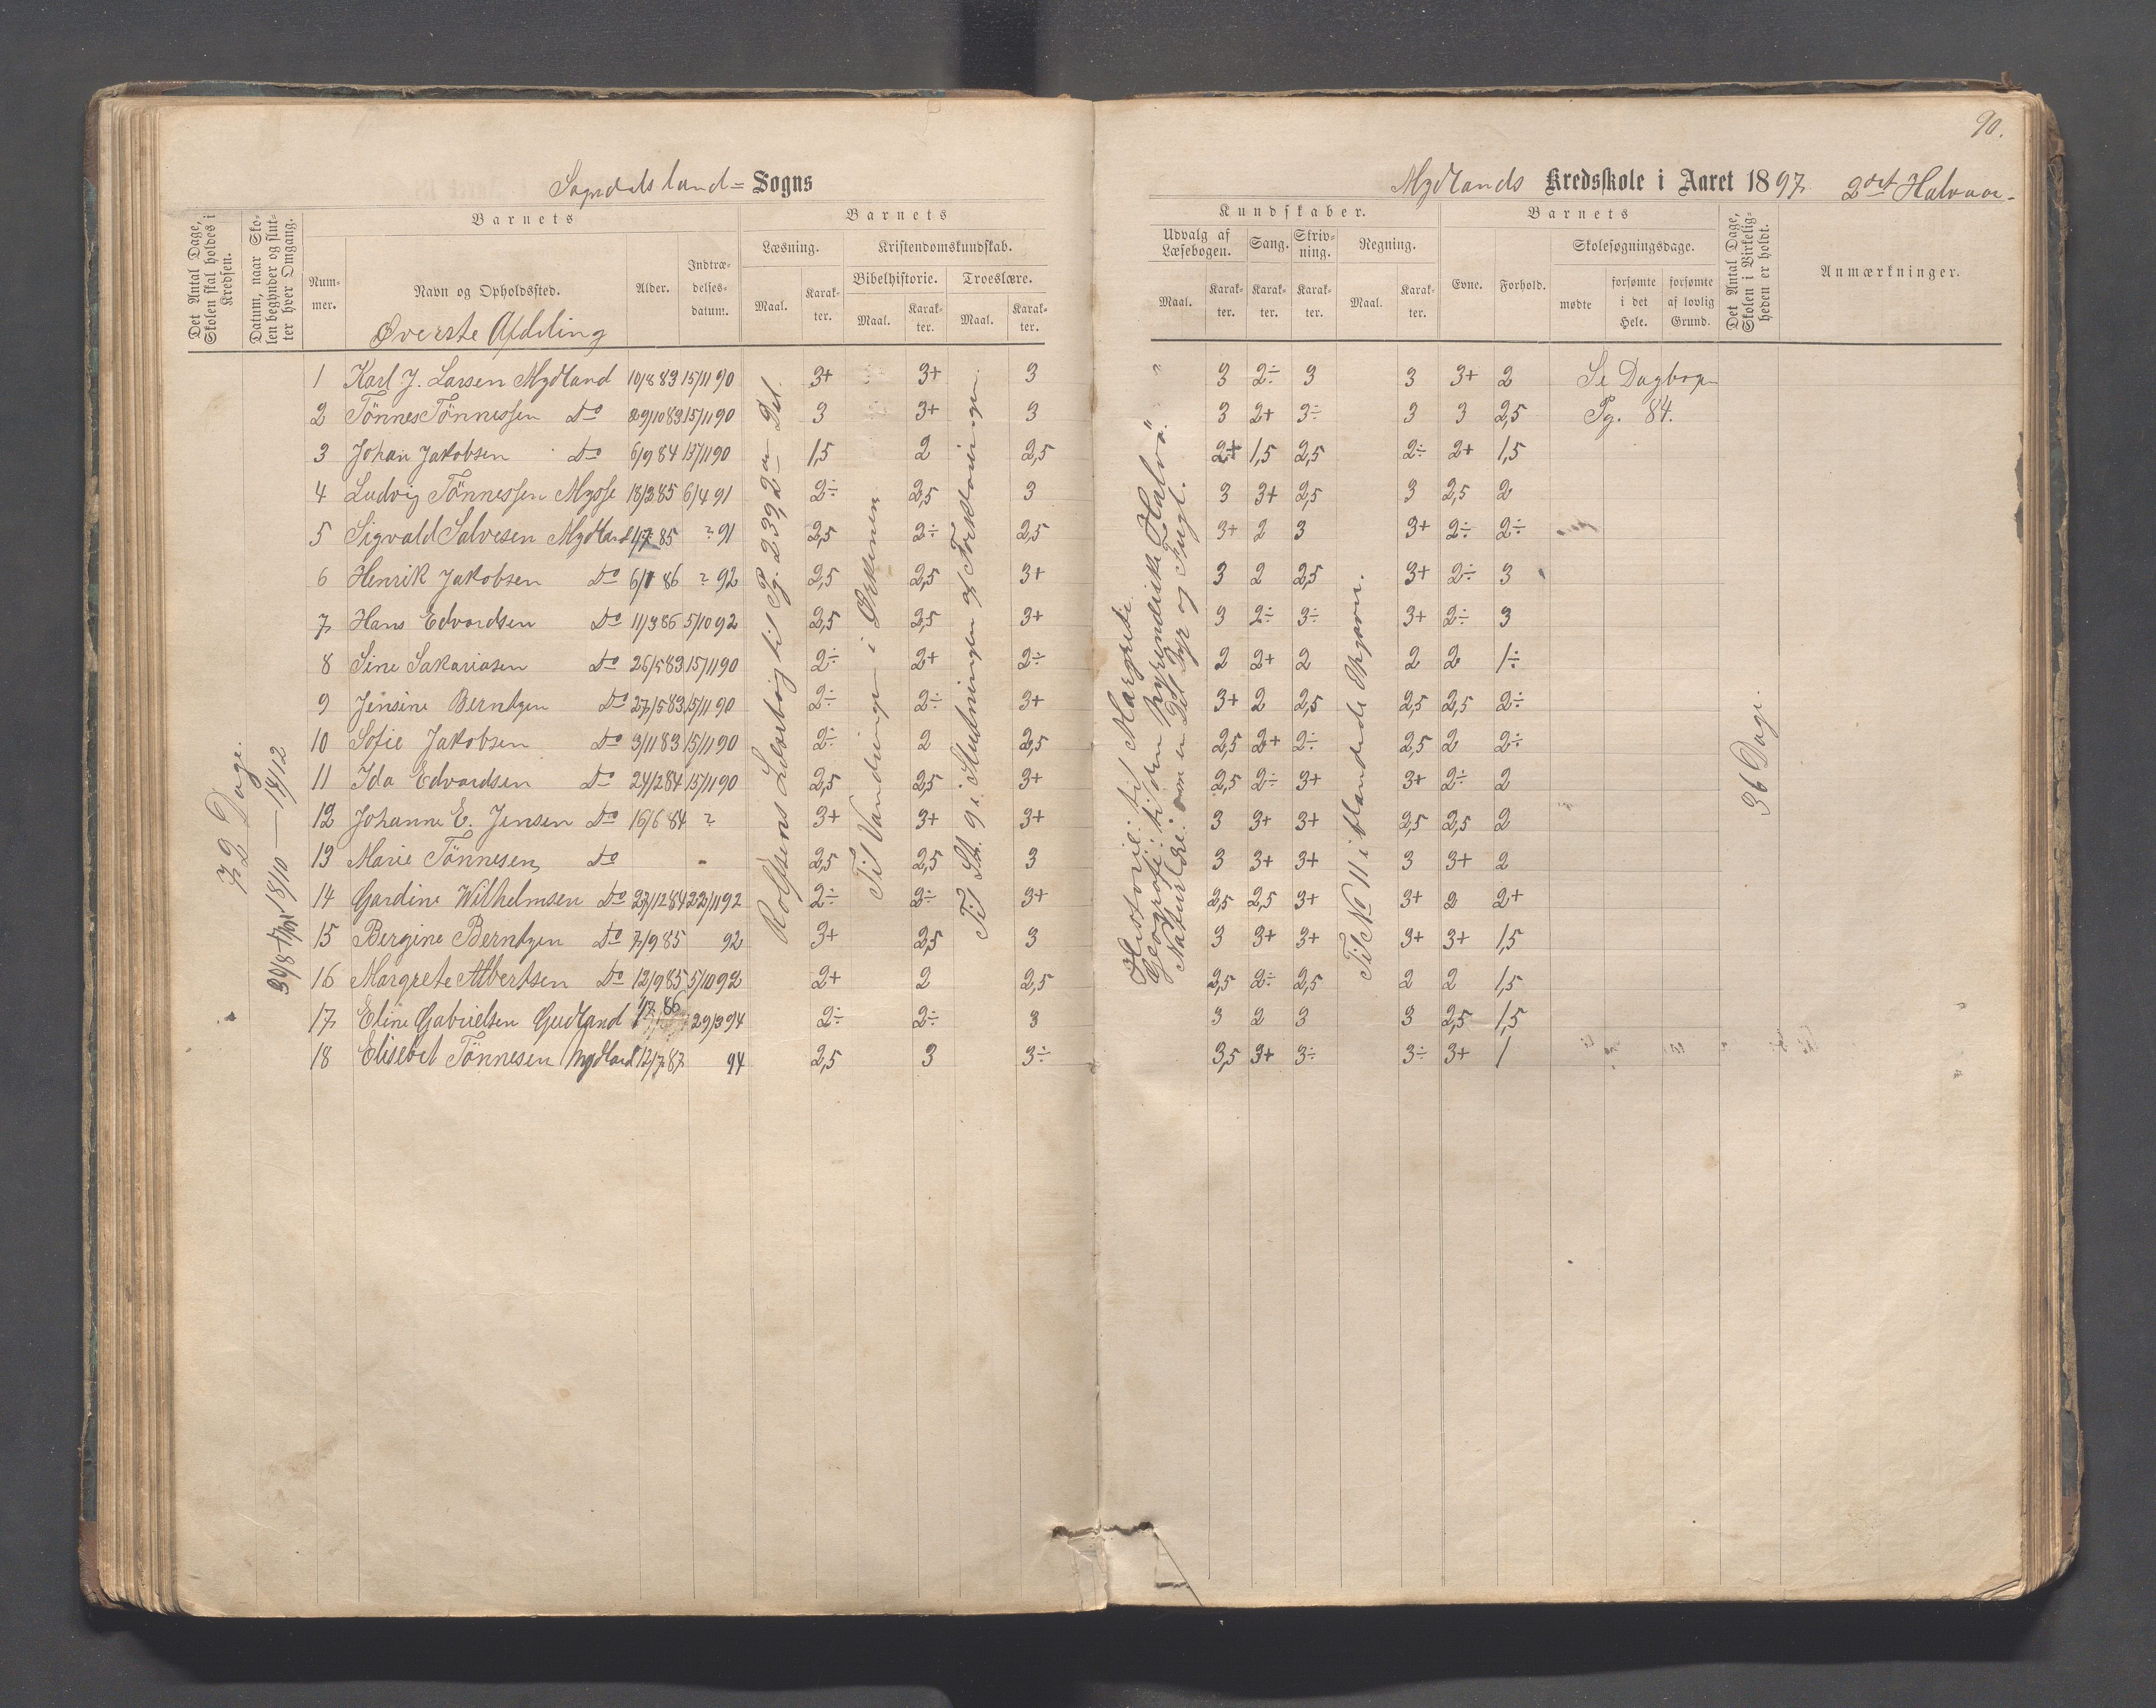 90.
Sogndals land= Sogns
Mydlands Kredsskole i Aaret 1897. 2det Halvaar.
Det Antal Dage, Skolen skal holdes i Kredsen.
Datum, naar Skolen begynder og slutter hver Omgang.
Barnets
Nummer.
Navn og Opholdssted.
Alder.
Indtrædelsesdatum.
Barnets
Læsning.
Kristendomskundskab.
Bibelhistorie.
Troeslære.
Maal.
Karakter.
Maal.
Karakter.
Maal.
Karakter.
Kundskaber.
Udvalg af Læsebogen.
Sang.
Skrivning.
Regning.
Maal.
Karakter.
Karakter.
Karakter.
Maal.
Karakter.
Barnets
Evne.
Forhold.
Skolesøgningsdage.
mødte
forsømte i det Hele.
forsømte af lovlig Grund.
Det Antal Dage, Skolen i Virkeligheden er holdt.
Anmærkninger.
Øverste Afdeling
1 Karl J. Larsen Mydland 10/8 83 15/11 90 3+ 3+ 3 " 3 2÷ 3 3 3+ 2 Se Dagbogen
2 Tönnes Tönnessen Do 29/10 83 15/11 90 3 3+ 3 3 2+ 3÷ 3 3 2,5 Pg. 84.
3 Johan Jakobsen Do 6/9 84 15/11 90 1,5 2 2,5 2+ 1,5 2,5 2÷ 2+ 1,5
4 Ludvig Tönnessen Mysse 18/2 85 6/4 91 2÷ 2,5 3 3 3+ 2,5 3 2,5 2
5 Sigvald Salvesen Mydland 1/7 85 ? 91 2,5 2÷ 2,5 3+ 2 3 3+ 2÷ 2÷
6 Henrik Jakobsen Do 6/1 86 ? 92 2,5 2,5 3+ 3 2 2,5 3+ 2÷ 3
7 Hans Edvardsen Do 11/3 86 5/10 92 2,5 2,5 3+ 3 2÷ 3÷ 3+ 2÷ 3
8 Sine Sakariasen Do 26/5 83 15/11 90 2÷ 2+ 2÷ 2 2+ 2 2 2 1÷
9 Jensine Berntzen Do 27/5 83 15/11 90 2÷ 2÷ 3+ 3+ 2 2,5 2,5 2,5 2÷
10 Sofie Jakobsen Do 3/11 83 15/11 90 2÷ 2 2,5 2,5 2+ 2÷ 2,5 2 2÷
11 Ida Edvardsen Do 24/2 84 15/11 90 2,5 2,5 3+ 2,5 2÷ 3+ 3+ 2÷ 2
12 Johanne E. Jensen Do 16/6 84 ? 3+ 3+ 3+ 3 3+ 3+ 2,5 2,5 2
13 Marie Tönnesen Do - 2,5 2,5 3 3 3+ 3+ 3 3+ 2
14 Gardine Wilhelmsen Do 23/12 84 22/11 92 2÷ 2÷ 3+ 2,5 2,5 3+ 3+ 2 2+
15 Bergine Berntzen Do 7/9 85 92 3+ 2,5 3 3 3+ 3+ 3+ 3+ 1,5
16 Margrete Albertsen Do 12/9 85 5/10 92 2+ 2 2,5 2,5 2÷ 2,5 2 2 1,5
17 Eline Gabrielsen Gudland 1/7 86 29/3 94 2÷ 2÷ 3 3 2 3 3 2,5 1,5
18 Elisebet Tönnesen Mydland 12/7 87 94 2,5 3 3÷ 3,5 3+ 3÷ 3÷ 3+ 1
72 Dage.
18/10 — 14/12
Rolfsens Læsebog til Pg. 239, 2en Del.
Til Vandringen i Ørkenen
Til St. 9 i Slutningen af Forklaringen.
Historie: til Margrete.
Geografi: til den Pyrenæiske Halvö.
Naturlære: om en Del Dyr og Fugl.
Til No 11 i blandede Opgaver.
36 Dage.